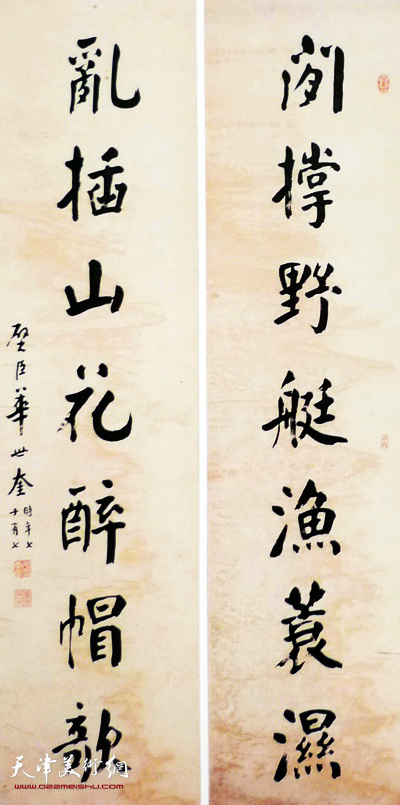 閒撑野艇漁蓑濕
亂插山花醉帽欹
璧臣華世奎
時年七
十有七
天津美術網
www.022meishu.com